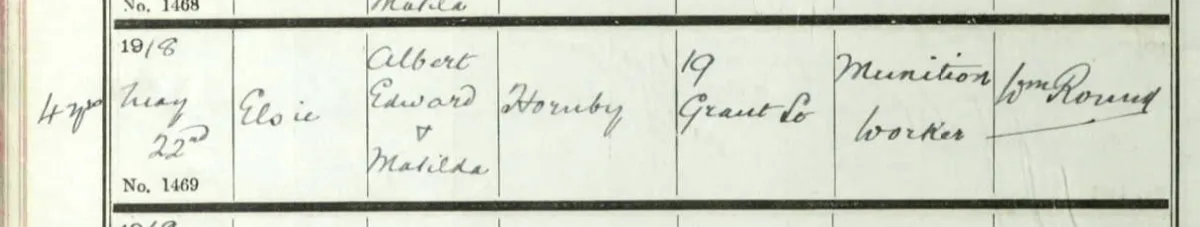 No. 1468
Matilda
1918
4 yrs
May
22nd
No. 1469
Elsie
Albert
Edward
&
Matilda
Hornby
19
Grant St
Munition
Worker
Wm Round